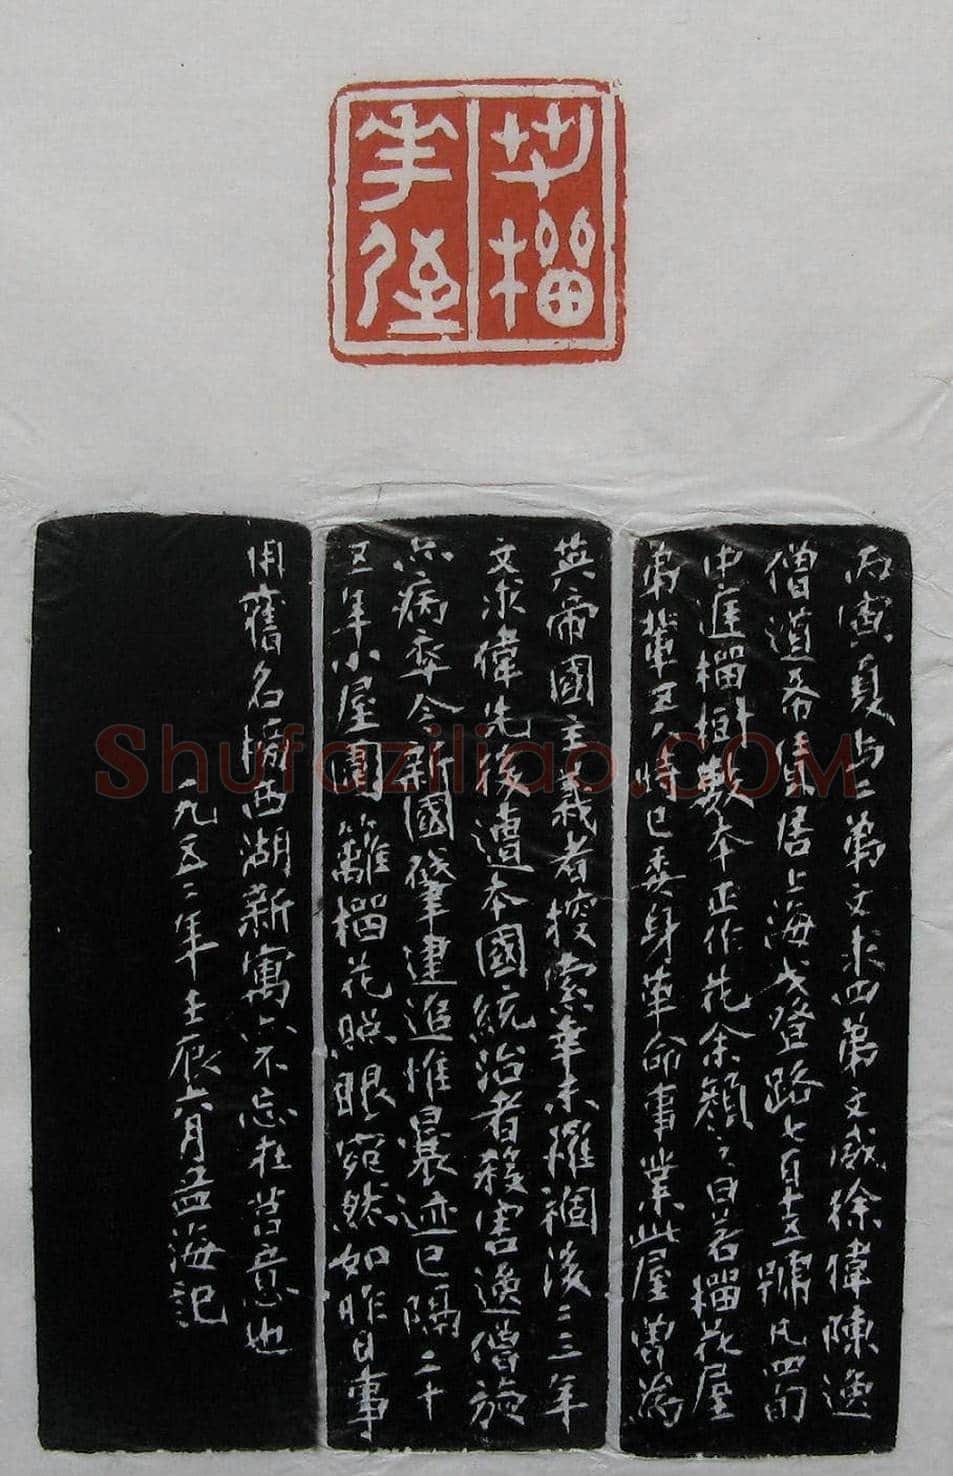 若榴
花屋
丙寅夏与二弟文求四弟文威徐偉陳逸
僧道希東居上海戈登路七百十五號凡四
中庭榴樹數本正作花余顏之曰若榴花屋
弟輩五人時已委身革命事業此屋曾為
英帝國主義者搜索幸未罹禍後二三年
文求偉先後遭本國統治者殘害逸僧旋
亦病卒今新國肇建追惟曩迹已隔二十
五年小屋圍籬榴花照眼宛然如昨日事
用舊名榜西湖新寓亦不忘在莒意也
一九五二年壬辰六月孟海記
Shufaziliao.COM